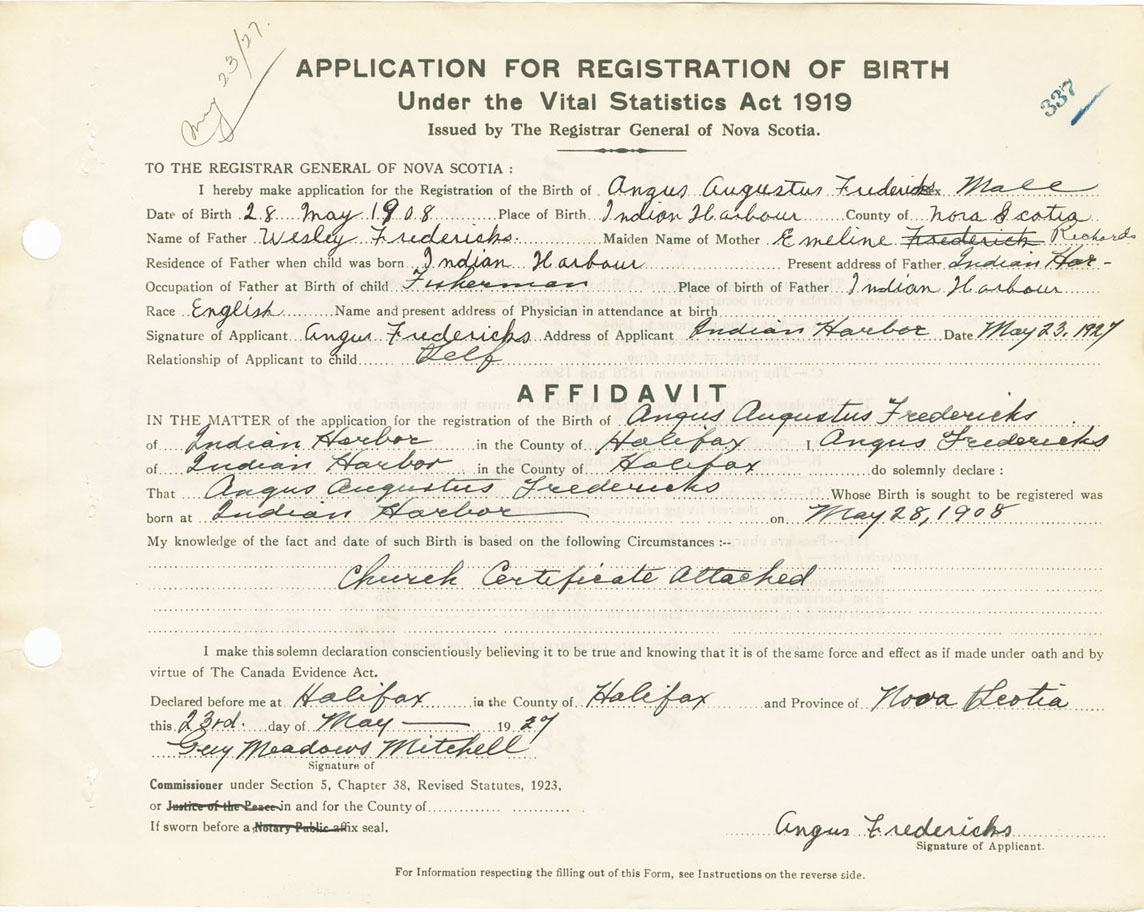 May 23/27.
337
APPLICATION FOR REGISTRATION OF BIRTH
Under the Vital Statistics Act 1919
Issued by The Registrar General of Nova Scotia.
TO THE REGISTRAR GENERAL OF NOVA SCOTIA :
I hereby make application for the Registration of the Birth of Angus Augustus Fredericks Male
Date of Birth 28 May 1908 Place of Birth Indian Harbour County of Nova Scotia
Name of Father Wesley Fredericks. Maiden Name of Mother Emeline Frederick Richards
Residence of Father when child was born Indian Harbour Present address of Father Indian Har-
Occupation of Father at Birth of child Fisherman Place of birth of Father Indian Harbour
Race English Name and present address of Physician in attendance at birth
Signature of Applicant Angus Fredericks Address of Applicant Indian Harbor Date May 23, 1927
Relationship of Applicant to child Self
AFFIDAVIT
IN THE MATTER of the application for the registration of the Birth of Angus Augustus Fredericks
of Indian Harbor in the County of Halifax I, Angus Fredericks
of Indian Harbor in the County of Halifax do solemnly declare :
That Angus Augustus Fredericks Whose Birth is sought to be registered was
born at Indian Harbor on May 28, 1908
My knowledge of the fact and date of such Birth is based on the following Circumstances :--
Church Certificate Attached
I make this solemn declaration conscientiously believing it to be true and knowing that it is of the same force and effect as if made under oath and by
virtue of The Canada Evidence Act.
Declared before me at Halifax in the County of Halifax and Province of Nova Scotia
this 23rd. day of May 1927
Guy Meadows Mitchell
Signature of
Commissioner under Section 5, Chapter 38, Revised Statutes, 1923,
or Justice of the Peace in and for the County of
If sworn before a Notary Public affix seal.
Angus Fredericks
Signature of Applicant.
For Information respecting the filling out of this Form, see Instructions on the reverse side.